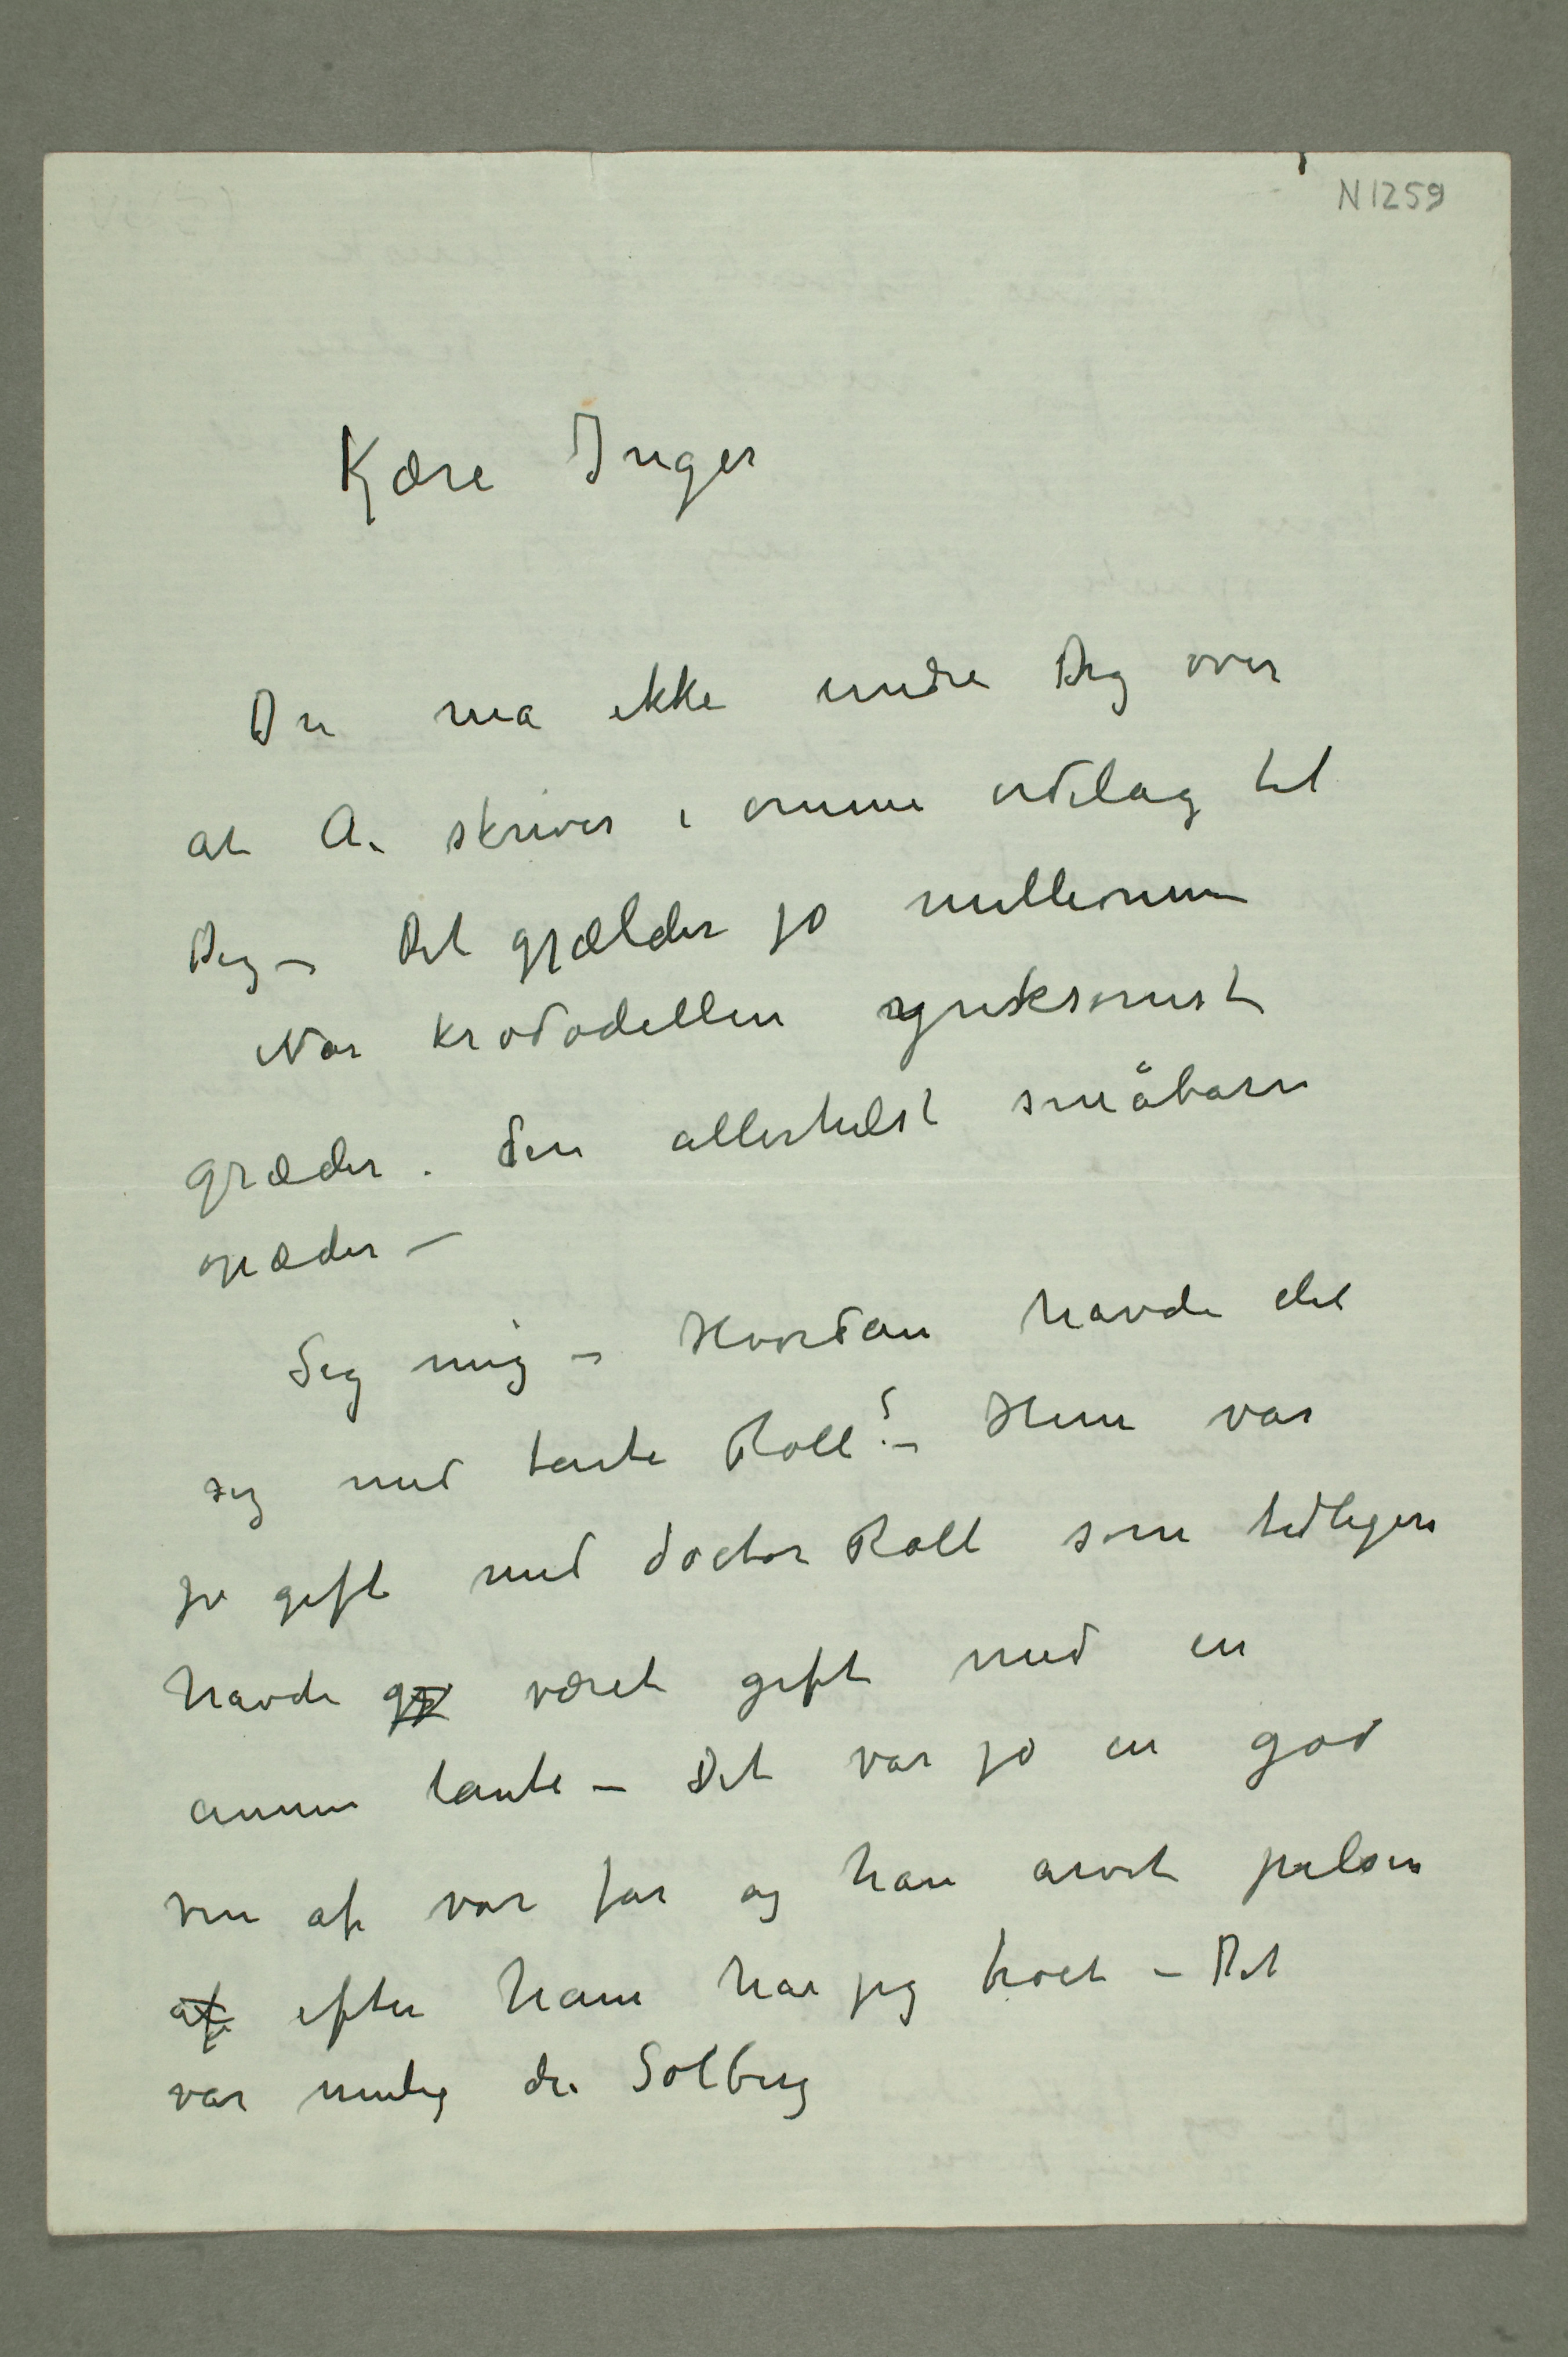 N 1259
Kjære Inger
Du må ikke undre Dig over
at A. skriver i ømme ordelag til
Dig – Det gjælder jo millionen
Når krododellen ynksomst
græder. den allerhelst småbarn
opæder –
Seg mig – Hvordan havde det
sig med tante Roll? – Hun var
jo gift med doctor Roll som tidligere
havde været gift med en
annen tante – Det var jo en god
ven af vor far og han arvet pelsen
af efter ham har jeg troet – Det
var mulig dr. Solberg